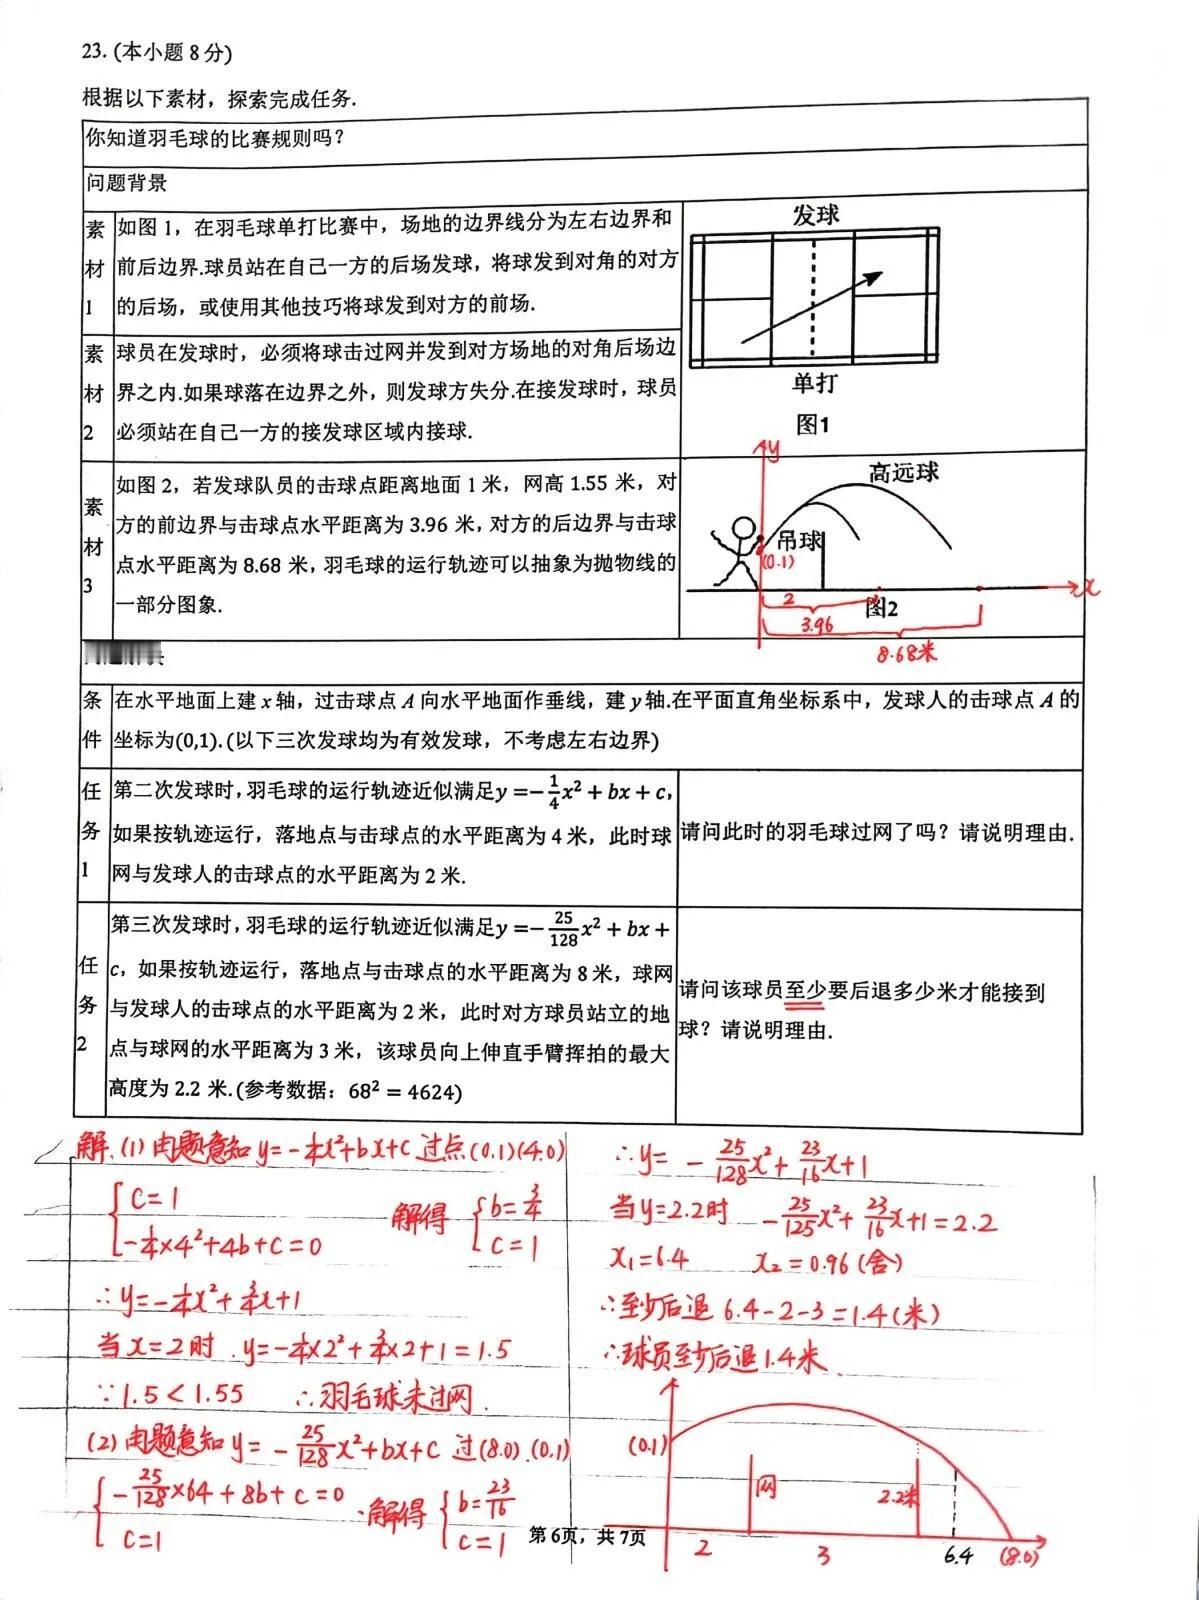 23. (本小题 8 分)
根据以下素材，探索完成任务.
你知道羽毛球的比赛规则吗？
问题背景
素材1
如图 1，在羽毛球单打比赛中，场地的边界线分为左右边界和
前后边界.球员站在自己一方的后场发球，将球发到对角的对方
的后场，或使用其他技巧将球发到对方的前场.
发球
单打
图1
素材2
球员在发球时，必须将球击过网并发到对方场地的对角后场边
界之内.如果球落在边界之外，则发球方失分.在接发球时，球员
必须站在自己一方的接发球区域内接球.
素材3
如图 2，若发球队员的击球点距离地面 1 米，网高 1.55 米，对
方的前边界与击球点水平距离为 3.96 米，对方的后边界与击球
点水平距离为 8.68 米，羽毛球的运行轨迹可以抽象为抛物线的
一部分图象.
y
高远球
吊球
(0.1)
x
2
图2
3.96
8.68米
条件
在水平地面上建 x 轴，过击球点 A 向水平地面作垂线，建 y 轴.在平面直角坐标系中，发球人的击球点 A 的
坐标为(0,1). (以下三次发球均为有效发球，不考虑左右边界)
任务1
第二次发球时，羽毛球的运行轨迹近似满足y =−1/4x²+bx+c，
如果按轨迹运行，落地点与击球点的水平距离为 4 米，此时球
网与发球人的击球点的水平距离为 2 米.
请问此时的羽毛球过网了吗？请说明理由.
任务2
第三次发球时，羽毛球的运行轨迹近似满足y =−25/128x²+bx+
c，如果按轨迹运行，落地点与击球点的水平距离为 8 米，球网
与发球人的击球点的水平距离为 2 米，此时对方球员站立的地
点与球网的水平距离为 3 米，该球员向上伸直手臂挥拍的最大
高度为 2.2 米. (参考数据：68² = 4624)
请问该球员至少要后退多少米才能接到
球？请说明理由.
解.(1) 由题意知 y=−1/4x²+bx+c 过点(0.1)(4.0)
{ c=1
−1/4×4²+4b+c=0
解得 { b=3/4
c=1
∴y=−1/4x²+3/4x+1
当x=2时. y=−1/4×2²+3/4×2+1=1.5
∵1.5<1.55 ∴羽毛球未过网.
(2) 由题意知 y=−25/128x²+bx+c 过(8.0).(0.1)
{ −25/128×64+8b+c=0
c=1
解得 { b=23/16
c=1
∴y= −25/128x²+23/16x+1
当y=2.2时 −25/125x²+23/16x+1=2.2
x₁=6.4 x₂=0.96(舍)
∴至少后退 6.4−2−3=1.4(米)
∴球员至少后退1.4米.
(0.1)
网
2.2米
2
3
6.4
(8.0)
第 6页，共 7页